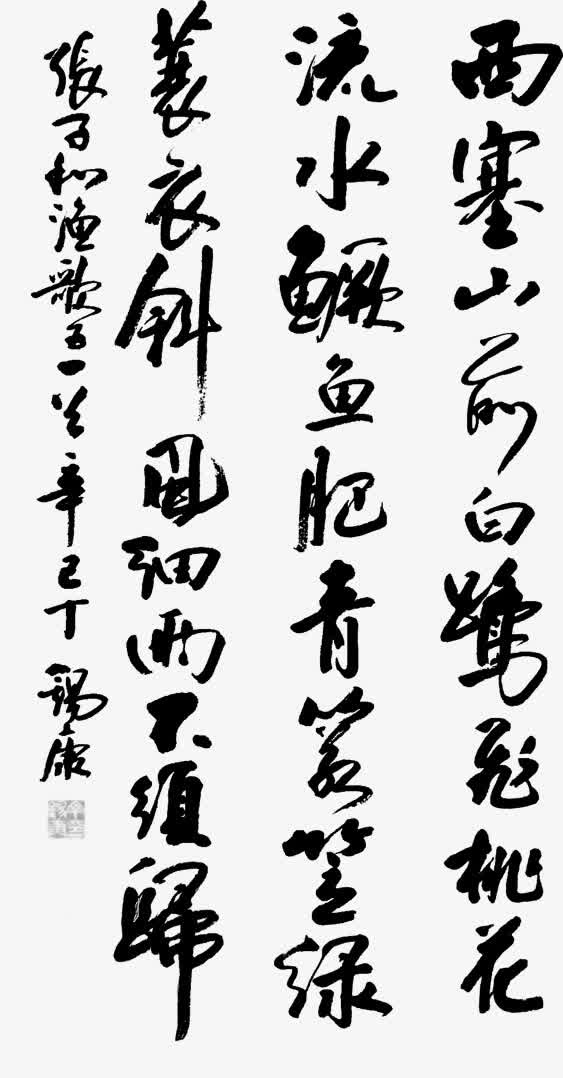 西塞山前白鹭飛桃花
流水鳜鱼肥青箬笠绿
蓑衣斜風细雨不須歸
張子和渔歌子一首辛巳丁錫康